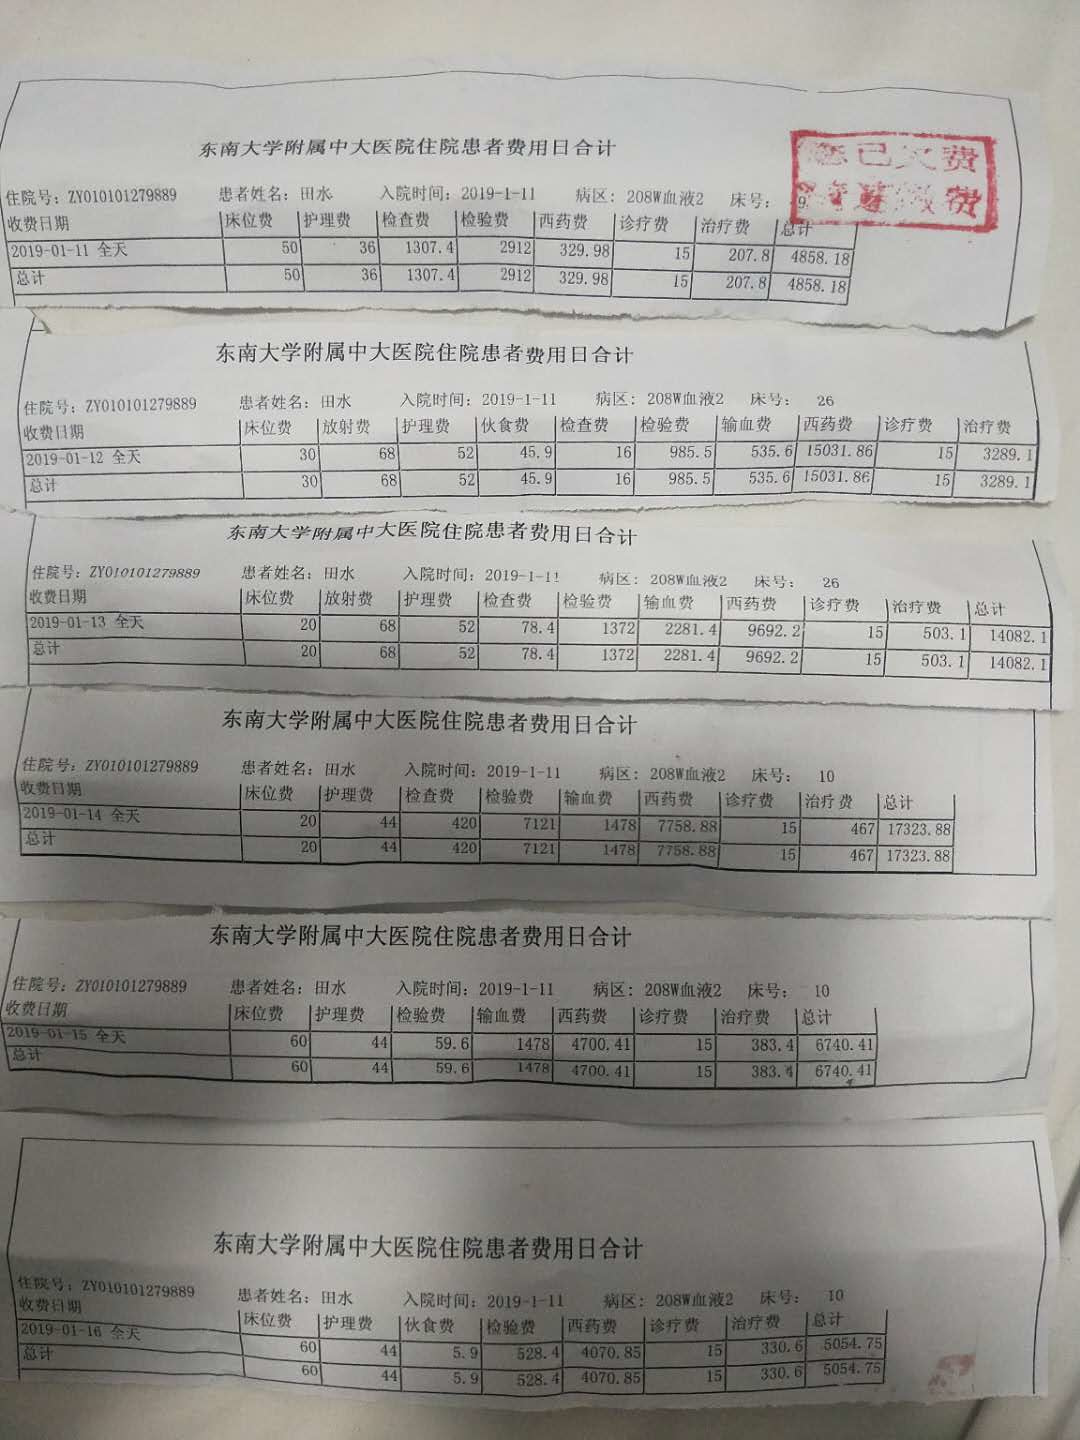 东南大学附属中大医院住院患者费用日合计
已欠费
费
住院号：ZY010101279889 患者姓名：田水 入院时间：2019-1-11 病区：208W血液2 床号： 9
收费日期 床位费 护理费 检查费 检验费 西药费 诊疗费 治疗费 总计
2019-01-11 全天 50 36 1307.4 2912 329.98 15 207.8 4858.18
总计 50 36 1307.4 2912 329.98 15 207.8 4858.18
东南大学附属中大医院住院患者费用日合计
住院号：ZY010101279889 患者姓名：田水 入院时间：2019-1-11 病区：208W血液2 床号： 26
收费日期 床位费 放射费 护理费 伙食费 检查费 检验费 输血费 西药费 诊疗费 治疗费
2019-01-12 全天 30 68 52 45.9 16 985.5 535.6 15031.86 15 3289.1
总计 30 68 52 45.9 16 985.5 535.6 15031.86 15 3289.1
东南大学附属中大医院住院患者费用日合计
住院号：ZY010101279889 患者姓名：田水 入院时间：2019-1-11 病区：208W血液2 床号： 26
收费日期 床位费 放射费 护理费 检查费 检验费 输血费 西药费 诊疗费 治疗费 总计
2019-01-13 全天 20 68 52 78.4 1372 2281.4 9692.2 15 503.1 14082.1
总计 20 68 52 78.4 1372 2281.4 9692.2 15 503.1 14082.1
东南大学附属中大医院住院患者费用日合计
住院号：ZY010101279889 患者姓名：田水 入院时间：2019-1-11 病区：208W血液2 床号： 10
收费日期 床位费 护理费 检查费 检验费 输血费 西药费 诊疗费 治疗费 总计
2019-01-14 全天 20 44 420 7121 1478 7758.88 15 467 17323.88
总计 20 44 420 7121 1478 7758.88 15 467 17323.88
东南大学附属中大医院住院患者费用日合计
住院号：ZY010101279889 患者姓名：田水 入院时间：2019-1-11 病区：208W血液2 床号： 10
收费日期 床位费 护理费 检验费 输血费 西药费 诊疗费 治疗费 总计
2019-01-15 全天 60 44 59.6 1478 4700.41 15 383.4 6740.41
总计 60 44 59.6 1478 4700.41 15 383.4 6740.41
东南大学附属中大医院住院患者费用日合计
住院号：ZY010101279889 患者姓名：田水 入院时间：2019-1-11 病区：208W血液2 床号： 10
收费日期 床位费 护理费 伙食费 检验费 西药费 诊疗费 治疗费 总计
2019-01-16 全天 60 44 5.9 528.4 4070.85 15 330.6 5054.75
总计 60 44 5.9 528.4 4070.85 15 330.6 5054.75